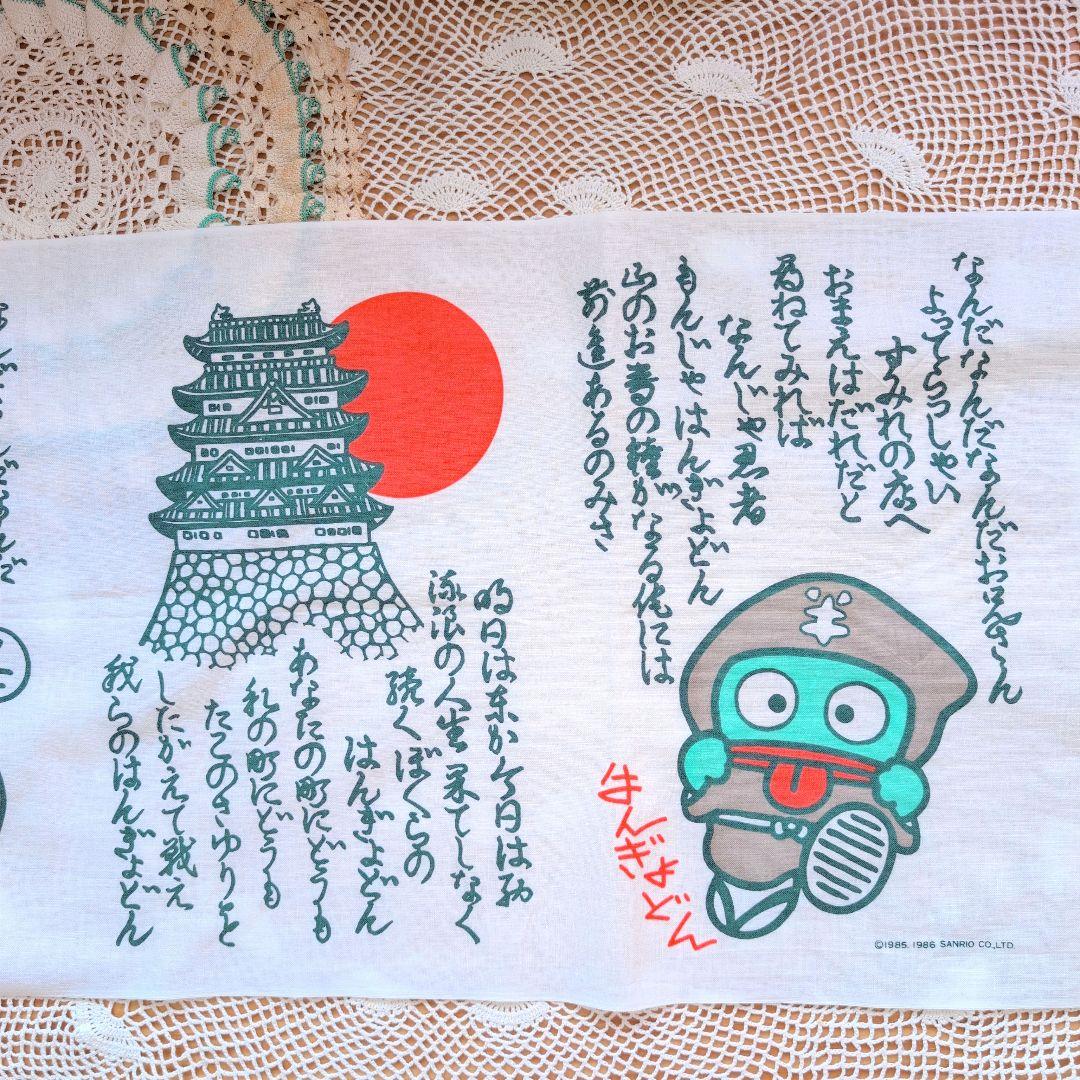 なんだなんだなんだお兄さん
よってらっしゃい
すみれの店へ
おまえはだれだと
尋ねてみれば
なんじゃ忍者
もんじゃはんぎょどん
山のお寺の鐘がなる俺には
前進あるのみさ
はんぎょどん
©1985, 1986 SANRIO CO.,LTD.
明日は東か今日は西
流浪の人生果てしなく
続くぼくらの
はんぎょどん
あなたの町にどうも
私の町にどうも
たこのさゆりを
したがえて戦え
我らのはんぎょどん